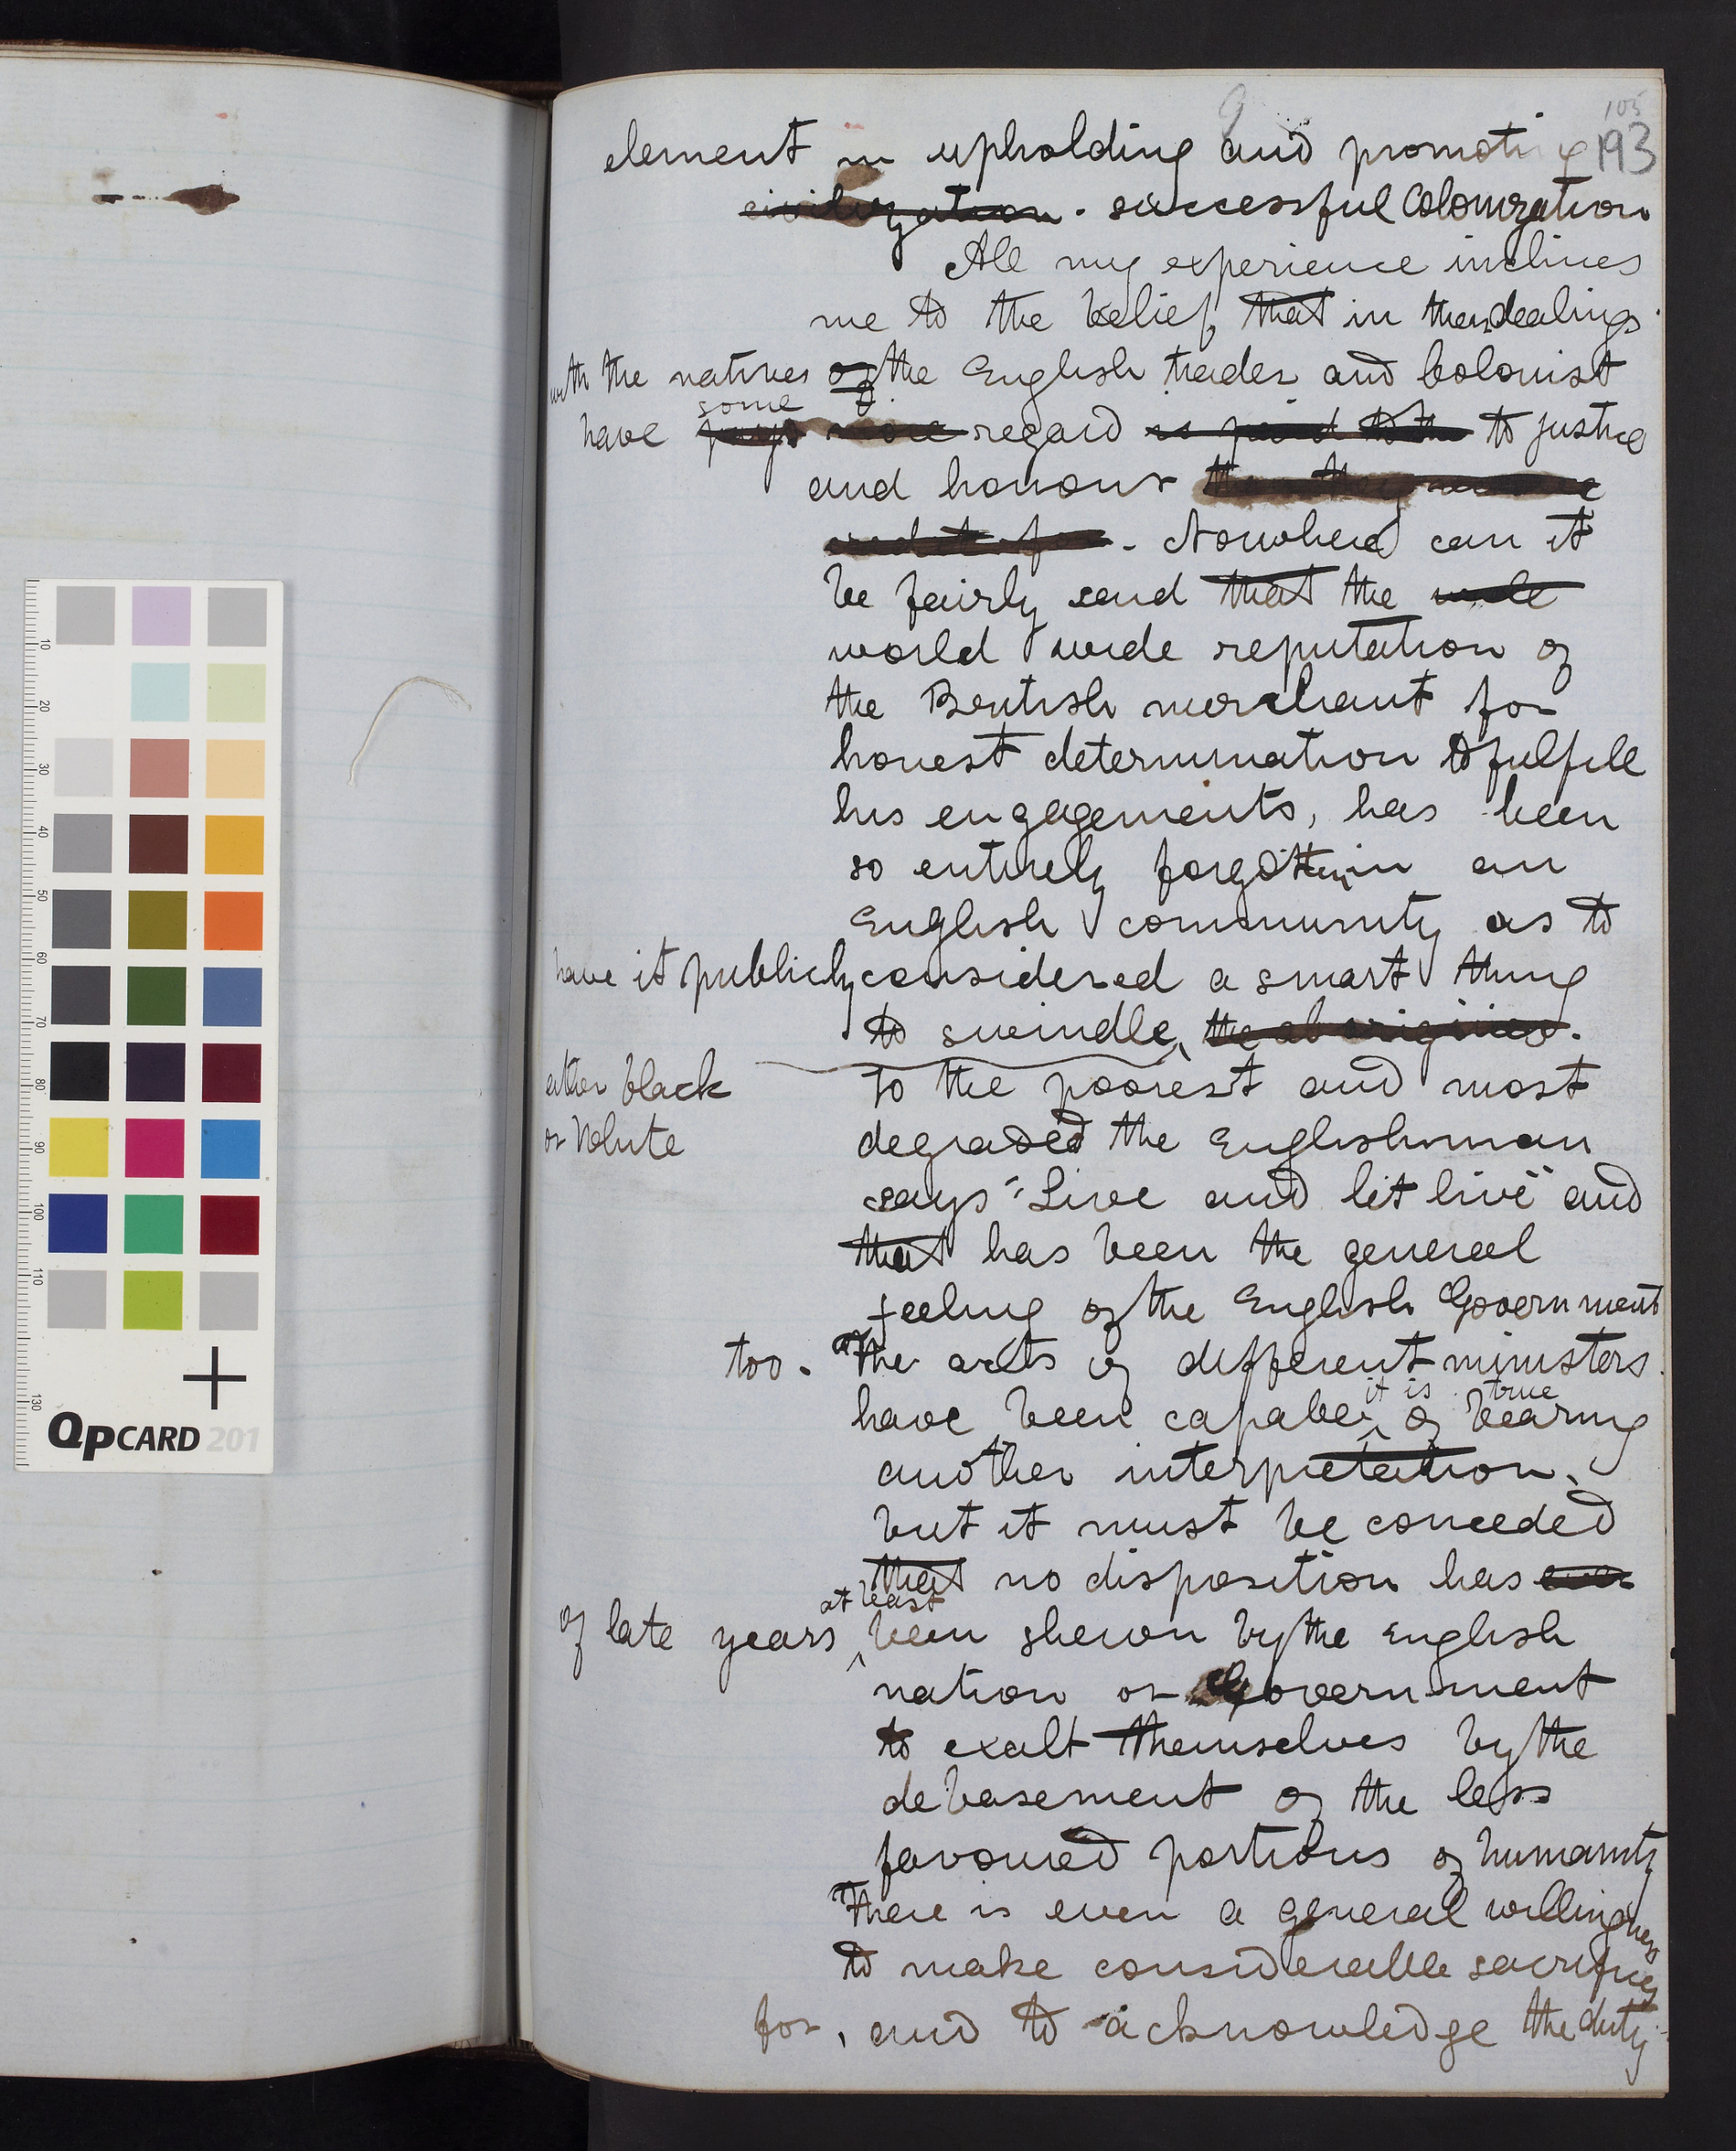 9
105
193
element in upholding and promoting
civilization. successful Colonization
All my experience inclines
me to the belief that in their dealings
with the natives of the English trader and Colonist
some
have more regard is paid to the to justice
and honour than they
credit for. Nowhere can it
be fairly said that the wide
world wide reputation of
the British merchant for
honest determination to fulfill
his engagements, has been
so entirely forgotten in an
English community as to
have it publicly considered a smart thing
to swindle the aborigines.
either black
or white
to the poorest and most
degraded the Englishman
says "Live and let live" and
that has been the general
feeling of the English Government
too. The acts of different ministers
it is true
have been capable, of bearing
another interpretation,
but it must be conceded
that no disposition has ever
at least
of late years been shewn by the English
nation or Government
to exalt themselves by the
debasement of the less
favoured portions of humanity
There is even a general willingness
to make considerable sacrifices
for, and to acknowledge the duty
10
20
30
40
50
60
70
80
90
100
110
130
QPCARD 201